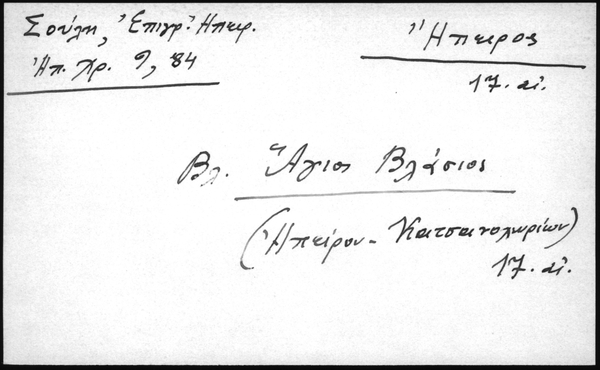 Σούλη, Ἐπιγρ. Ἠπειρ.
Ἠπ. Χρ. 9, 84
Ἤπειρος
17. αἰ.
Βλ. Ἅγιος Βλάσιος
(Ἠπείρου - Κατσανοχωρίων)
17. αἰ.